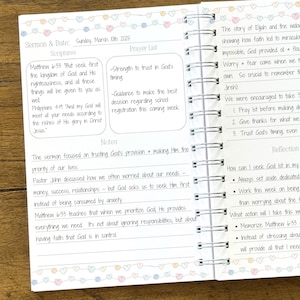 Sermon & Date: Sunday, March 10th 2024
Scriptures
Matthew 6:33 "But seek first
the kingdom of God and His
righteousness, and all these
things will be given to you as
well.
Philippians 4:19 "And my God will
meet all your needs according to
the riches of his glory in Christ
Jesus."
Prayer List
-Strength to trust in God's
timing.
-Guidance to make the best
decision regarding school
registration this coming week.
Notes
The sermon focused on trusting God's provision + making Him the
priority of our lives.
Pastor John discussed how we often worried about our needs -
money, success, relationships - but God asks us to seek Him first
instead of being consumed by anxiety.
Matthew 6:33 teaches that when we prioritize God, He provides
everything we need. It's not about ignoring responsibilities, but about
having faith that God is in control.
The story of Elijah and the widow
showing how faith led to miraculous
impossible, God provided oil + flour
Worry + fear come when we
own. So crucial to remember
Jireh).
We were encouraged to take
1. Pray list before making
2. Give thanks for what we
3. Trust God's timing, even
Reflection
How can I seek God 1st in my
• Set aside dedicated time
• Work this week on being
than worrying about the
What action will I take this
• Memorize Matthew 6:33
• Instead of stressing about
will provide all that I need